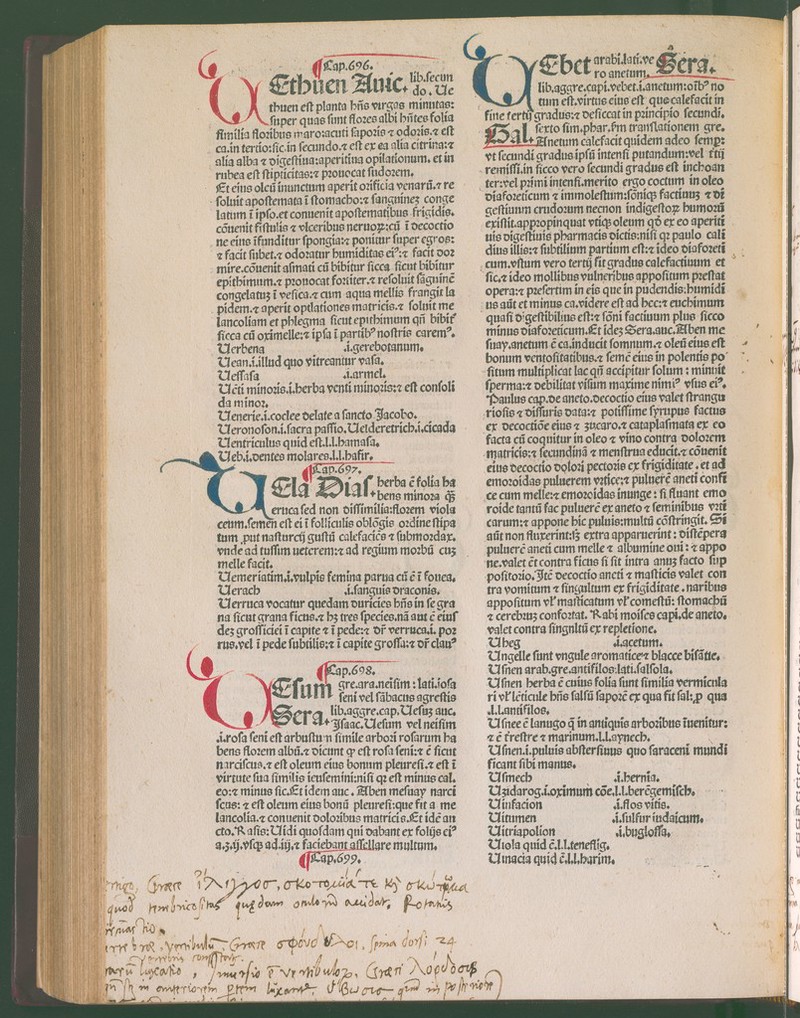 Cap.696.
VEthuen Auic. lib.secun
do. Ue
thuen est planta hñs virgas minutas:
super quas sunt flores albi hñtes folia
similia floribus maro:acuti saporis ⁊ odoris.⁊ est
ca.in tertio:sic.in secundo.⁊ est ex ea alia citrina:⁊
alia alba ⁊ digestiua:aperitiua opilationum. et in
rubea est stipticitas:⁊ prouocat sudorem.
Et eius oleū inunctum aperit orificia venarū.⁊ re
soluit apostemata ī stomacho:⁊ sanguinez conge
latum ī ipso.et conuenit apostematibus frigidis.
cōuenit fistulis ⁊ vlceribus neruoꝝ:cū ī decoctio
ne eius īfunditur spongia:⁊ ponitur super egros:
⁊ facit subet.⁊ odoratur humiditas eiꝰ:⁊ facit dor
mire.cōuenit asmati cū bibitur sicca sicut bibitur
epithimum.⁊ prouocat fortiter.⁊ resoluit sāguinē
congelatuz ī vesica.⁊ cum aqua mellis frangit la
pidem.⁊ aperit opilationes matricis.⁊ soluit me
lancoliam et phlegma sicut epithimum qñ bibit᷑
sicca cū oximelle:⁊ ipsa ī partibꝰ nostris caremꝰ.
Uerbena .i.gerebotanum.
Uean.i.illud quo vitreantur vasa.
Uessasa .i.armel.
Uēti minoris.i.herba venti minoris:⁊ est consoli
da minor.
Uenerie.i.coclee delate a sancto Jacobo.
Ueronoson.i.sacra passio.Uelderetrich.i.cicada
Uentriculus quid est.l.l.hamasa.
Ueb.i.dentes molares.l.l.hasir.
Cap.697.
VEla Dias. herba ē folia ha
bens minora qȝ
eruca sed non dissimilia:florem viola
ceum.semen est ei ī folliculis oblōgis ordine stipa
tum .put nasturcij gustū calefaciēs ⁊ submordax.
vnde ad tussim ueterem:⁊ ad regium morbū cuz
melle facit.
Uemeriatim.i.vulpis femina parua cū ē ī fouea.
Uerach .i.sanguis draconis.
Uerruca vocatur quedam duricies hñs in se gra
na sicut grana ficus.⁊ hȝ tres species.nā aut ē eius
dez grossiciei ī capite ⁊ ī pede:⁊ dr̄ verruca.i. por
rus.vel ī pede subtilis:⁊ ī capite grossa:⁊ dr̄ clauꝰ
Cap.698.
VEsum gre.ara.neisim : lati.iosa
seni vel sābacus agrestis
Sera. lib.aggre.cap.Uesuȝ auc.
Jsaac.Uesum vel neisim
.i.rosa seni est arbustum simile arbori rosarum ha
bens florem albū.⁊ dicunt ꝙ est rosa seni:⁊ ē sicut
narciscus.⁊ est oleum eius bonum pleuresi.⁊ est ī
virtute sua similis ieusemini:nisi qꝛ est minus cal.
eo:⁊ minus sic.Et idem auc . Aben mesuay narci
scus: ⁊ est oleum eius bonū pleuresi:que fit a me
lancolia.⁊ conuenit doloribus matricis.Et idē an
cto.Rasis:Uidi quosdam qui dabant ex folijs eiꝰ
a.ȝ.ij.vsqȝ ad.iij.⁊ faciebant assellare multum.
Cap.699.
VEbet arabi.lati.ve Sera.
ro anetum.
lib.aggre.capi.vebet.i.anetum:oībꝰ no
tum est.virtus eius est que calefacit in
fine tertij gradus:⁊ desiccat in principio secundi.
Gal. sexto sim.phar.sm̄ translationem gre.
Anetum calefacit quidem adeo semp:
vt secundi gradus ipsū intensi putandum:vel t̄tij
remissi.in sicco vero secundi gradus est inchoan
ter:vel primi intensi.merito ergo coctum in oleo
diaforeticum ⁊ immolestum:sōniqȝ factiuuȝ ⁊ di
gestiuum crudorum necnon indigestoꝝ humorū
existit.appropinquat vtiqȝ oleum qd̄ ex eo aperiti
uis digestiuis pharmacis dictis:nisi qꝛ paulo cali
dius illis:⁊ subtilium partium est:⁊ ideo diaforeti
cum.vstum vero tertij fit gradus calefactiuum et
sic.⁊ ideo mollibus vulneribus appositum prestat
opera:⁊ presertim in eis que in pudendis:humidi
us aūt et minus ca.videre est ad hec:⁊ euchimum
quasi digestibilius est:⁊ sōni factiuum plus sicco
minus diaforeticum.Et ideȝ Sera.auc.Aben me
suay.anetum ē ca.inducit somnum.⁊ oleū eius est
bonum ventositatibus.⁊ semē eius in polentis po
situm multiplicat lac qñ accipitur solum : minuit
sperma:⁊ debilitat visum maxime nimiꝰ vsus eiꝰ.
Paulus cap.de aneto.decoctio eius valet strangu
riosis ⁊ dissuris data:⁊ potissime syrupus factus
ex decoctiōe eius ⁊ zucaro.⁊ cataplasmata ex eo
facta cū coquitur in oleo ⁊ vino contra dolorem
matricis:⁊ secundinā ⁊ menstrua educit.⁊ cōuenit
eius decoctio dolori pectoris ex frigiditate . et ad
emoroidas puluerem vrtice:⁊ puluerē aneti confi
ce cum melle:⁊ emoroidas inunge : si fluant emo
roide tantū fac puluerē ex aneto ⁊ seminibus vrti
carum:⁊ appone hic puluis:multū cōstringit. Si
aūt non fluxerint:sȝ extra apparuerint : distēpera
puluerē aneti cum melle ⁊ albumine oui : ⁊ appo
ne.valet ēt contra ficus si sit intra anuȝ facto sup
positorio.Jtē decoctio aneti ⁊ masticis valet con
tra vomitum ⁊ singultum ex frigiditate . naribus
appositum vl̄ masticatum vl̄ comestū: stomachū
⁊ cerebruȝ confortat. Rabi moises capi.de aneto.
valet contra singultū ex repletione.
Uheg .i.acetum.
Ungelle sunt vngule aromatice ⁊ blacce bisātie.
Usnen arab.gre.antifilos:lati.salsola.
Usnen herba ē cuius folia sunt similia vermicula
ri vl̄ lēticule hñs salsū saporē ex qua fit sal:ꝓ qua
.l.l.antifilos.
Usnee ē lanugo q̄ in antiquis arboribus īuenitur:
⁊ ē t̄restre ⁊ marinum.l.l.aynech.
Usnen.i.puluis abstersiuus quo saraceni mundi
ficant sibi manus.
Usmech .i.hernia.
Uzidarog.i.oximum cōe.l.l.berēgemisch.
Uinfacion .i.flos vitis.
Uitumen .i.sulfur iudaicum.
Uitriapolion .i.buglossa.
Uiola quid ē.l.l.teneflig.
Uinacia quid ē.l.l.harim.
Graece ἴλιγγοσ, σκοτωμία
quod tenebricositas quędam oculorū accidat,
Graece σφόνδυλοι, spina dorsi 24
luxatio, Graeci λόρδοσισ